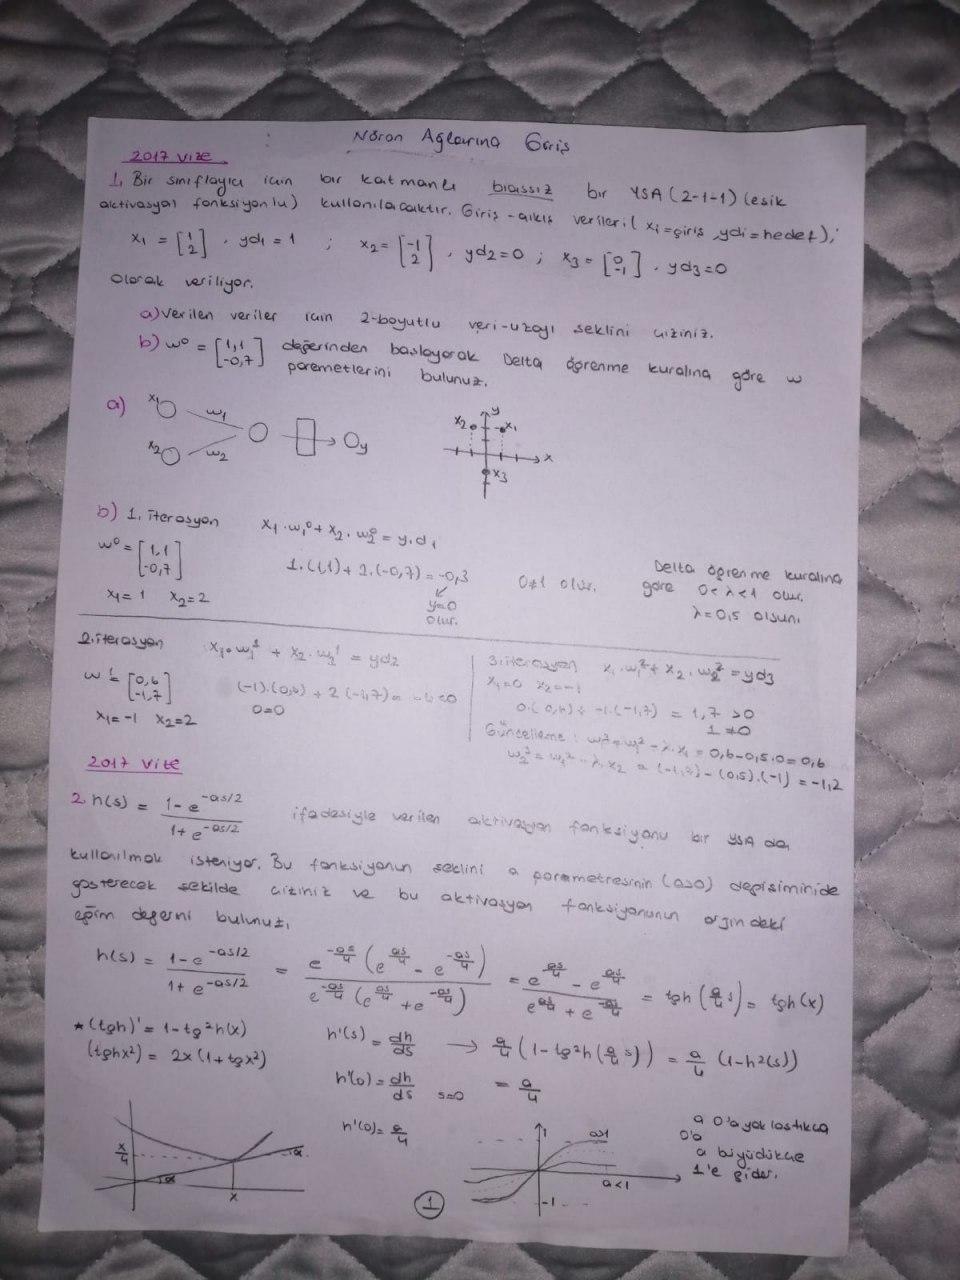 Nöron Ağlarına Giriş
2017 vize
1. Bir sınıflayıcı için bir katmanlı biassız bir YSA (2-1-1) (esik
aktivasyal fonksiyonlu) kullanılacaktır. Giriş-çıkış verileri ( xi=giriş, ydi=hedef);
x₁ = [1 2], yd₁ = 1 ; x₂ = [-1 2], yd₂=0 ; x₃ = [0 -1], yd₃=0
olarak veriliyor.
a) Verilen veriler için 2-boyutlu veri-uzayı şeklini çiziniz.
b) w⁰ = [1,1 -0,7] değerinden başlayarak Delta öğrenme kuralına göre w
paremetlerini bulunuz.
a) x₁ w₁ x₂ w₂ y
x₂ y x₁ x x₃
b) 1. iterasyon x₁.w₁⁰ + x₂.w₂⁰ = y.d₁
w⁰ = [1,1 -0,7] 1.(1,1) + 2.(-0,7) = -0,3 0≠1 olur.
y=0
olur.
x₁=1 x₂=2
Delta öğrenme kuralına
göre 0<λ<1 olur.
λ=0,5 olsun.
2. iterasyon x₁.w₁¹ + x₂.w₂¹ = yd₂
w¹ = [0,6 -1,7] (-1).(0,6) + 2(-1,7) = <0
0=0
x₁=-1 x₂=2
3. iterasyon x₁.w₁² + x₂.w₂² = yd₃
x₁=0 x₂=-1
0.(0,6) + -1.(-1,7) = 1,7 >0
1≠0
Güncelleme: w₁³=w₁² - λ.x₁ = 0,6-0,5.0=0,6
w₂³ = w₂² - λ.x₂ = (-1,7)-(0,5).(-1) = -1,2
2017 Vize
2. h(s) = (1-e^(-as/2))/(1+e^(-as/2)) ifadesiyle verilen aktivasyon fonksiyonu bir YSA da
kullanılmak isteniyor. Bu fonksiyonun şeklini a parametresinin (a>0) değişiminide
gösterecek şekilde çiziniz ve bu aktivasyon fonksiyonunun orjindeki
eğim değerni bulunuz.
h(s) = (1-e^(-as/2))/(1+e^(-as/2)) = e^(-as/4)(e^(as/4) - e^(-as/4))/e^(-as/4)(e^(as/4) + e^(-as/4)) = (e^(as/4) - e^(as/4))/(e^(as/4) + e^(-as/4)) = tgh(a/4 s) = tgh(x)
*(tgh)' = 1-tg²h(x)
(tghx²) = 2x(1+tgx²)
h'(s) = dh/ds → a/4 (1-tg²h(a/4 s)) = a/4 (1-h²(s))
h'(0) = dh/ds s=0 = a/4
h'(0) = a/4
x/4 α α x
1 a>1 a<1 -1
a 0'a yaklastıkca
0'a
a büyüdükçe
1'e gider.
1